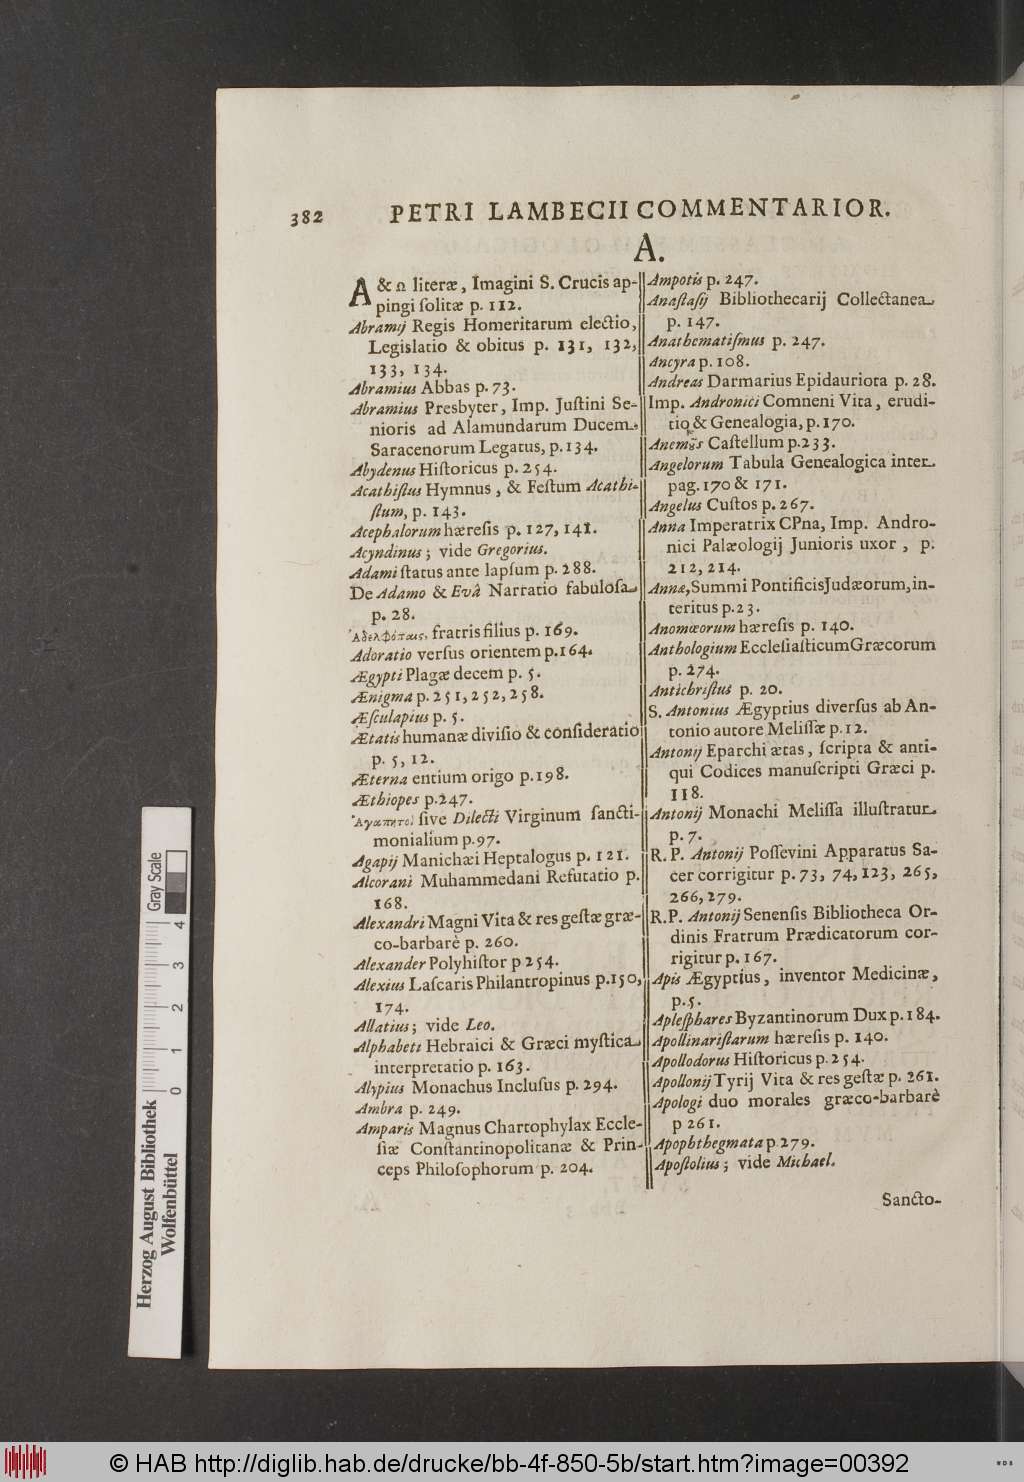 382 PETRI LAMBECII COMMENTARIOR.
A.
A & Ω literæ, Imagini S. Crucis ap-
pingi ſolitæ p. 112.
Abramij Regis Homeritarum electio,
Legislatio & obitus p. 131, 132,
133, 134.
Abramius Abbas p. 73.
Abramius Presbyter, Imp. Juſtini Se-
nioris ad Alamundarum Ducem
Saracenorum Legatus, p. 134.
Abydenus Hiſtoricus p. 254.
Acathiſtus Hymnus, & Feſtum Acathi-
ſtum, p. 143.
Acephalorum hæreſis p. 127, 141.
Acyndinus; vide Gregorius.
Adami ſtatus ante lapſum p. 288.
De Adamo & Evâ Narratio fabuloſa
p. 28.
Ἀδελφόπαις, fratris filius p. 169.
Adoratio verſus orientem p. 164.
Ægypti Plagæ decem p. 5.
Ænigma p. 251, 252, 258.
Æſculapius p. 5.
Ætatis humanæ diviſio & conſideratio
p. 5, 12.
Æterna entium origo p. 198.
Æthiopes p. 247.
Ἀγαπητοὶ ſive Dilecti Virginum ſancti-
monialium p. 97.
Agapij Manichæi Heptalogus p. 121.
Alcorani Muhammedani Refutatio p.
168.
Alexandri Magni Vita & res geſtæ græ-
co-barbarè p. 260.
Alexander Polyhiſtor p 254.
Alexius Laſcaris Philantropinus p. 150,
174.
Allatius; vide Leo.
Alphabeti Hebraici & Græci myſtica
interpretatio p. 163.
Alypius Monachus Incluſus p. 294.
Ambra p. 249.
Amparis Magnus Chartophylax Eccle-
ſiæ Conſtantinopolitanæ & Prin-
ceps Philoſophorum p. 204.
Ampotis p. 247.
Anaſtaſij Bibliothecarij Collectanea
p. 147.
Anathematiſmus p. 247.
Ancyra p. 108.
Andreas Darmarius Epidauriota p. 28.
Imp. Andronici Comneni Vita, erudi-
tio & Genealogia, p. 170.
Anemȣs Caſtellum p. 233.
Angelorum Tabula Genealogica inter
pag. 170 & 171.
Angelus Cuſtos p. 267.
Anna Imperatrix CPna, Imp. Andro-
nici Palæologij Junioris uxor, p.
212, 214.
Annæ, Summi Pontificis Judæorum, in-
teritus p. 23.
Anomœorum hæreſis p. 140.
Anthologium Eccleſiaſticum Græcorum
p. 274.
Antichriſtus p. 20.
S. Antonius Ægyptius diverſus ab An-
tonio autore Meliſſæ p. 12.
Antonij Eparchi ætas, ſcripta & anti-
qui Codices manuſcripti Græci p.
118.
Antonij Monachi Meliſſa illuſtratur
p. 7.
R. P. Antonij Poſſevini Apparatus Sa-
cer corrigitur p. 73, 74, 123, 265,
266, 279.
R. P. Antonij Senenſis Bibliotheca Or-
dinis Fratrum Prædicatorum cor-
rigitur p. 167.
Apis Ægyptius, inventor Medicinæ,
p. 5.
Apleſphares Byzantinorum Dux p. 184.
Apollinariſtarum hæreſis p. 140.
Apollodorus Hiſtoricus p. 254.
Apollonij Tyrij Vita & res geſtæ p. 261.
Apologi duo morales græco-barbarè
p 261.
Apophthegmata p 279.
Apoſtolius; vide Michael.
Sancto-
Herzog August Bibliothek
Wolfenbüttel
Gray Scale
0 1 2 3 4
© HAB http://diglib.hab.de/drucke/bb-4f-850-5b/start.htm?image=00392